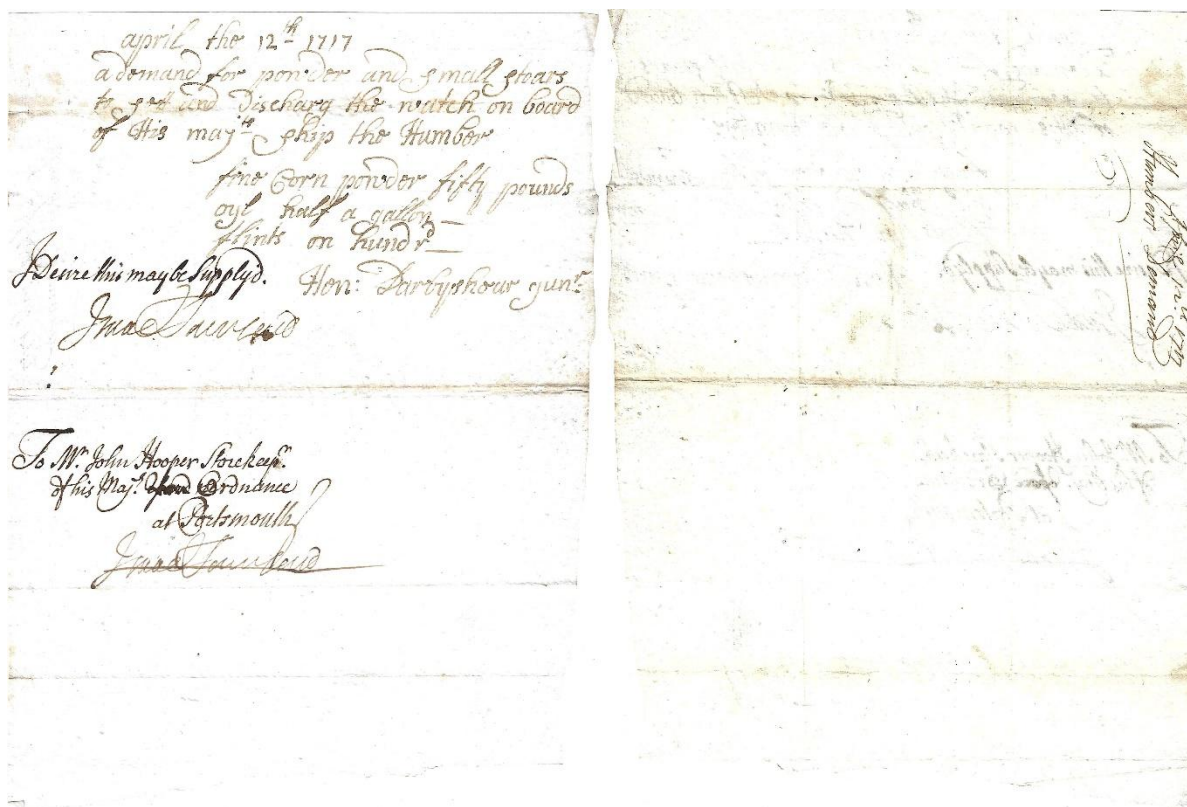 april the 12th 1717
a demand for powder and small stoars
to sett and Discharg the watch on board
of His majts ship the Humber
fine Corn powder fifty pounds
oyl half a gallon
flints on hundrd
I Desire this may be Supply'd.
Hen: Darbyshear gunr
Isaac Townsend
To Mr. John Hooper Storekeepr.
of his Majts. Ordnance
at Portsmouth
Isaac Townsend
Humber Demand
12th 1717